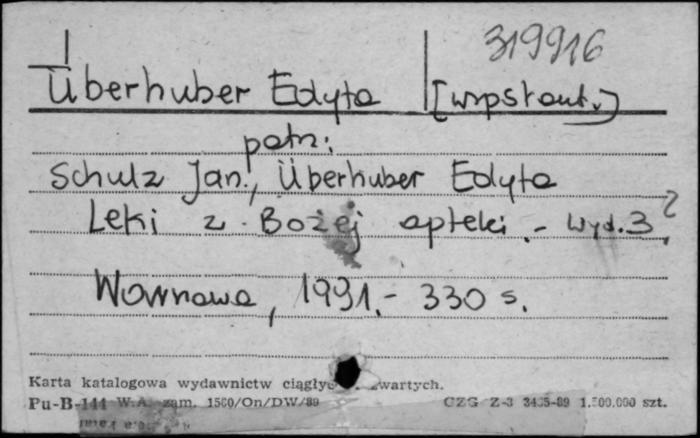 319916
Überhuber Edyta [współaut.]
patrz:
Schulz Jan, Überhuber Edyta
Leki z Bożej apteki. - Wyd. 3
Warszawa, 1991. - 330 s.
Karta katalogowa wydawnictw zwartych.
Pu-B-144 W.A. zam. 1560/On/DW/89 CZG Z-3 3435-89 1.500.000 szt.